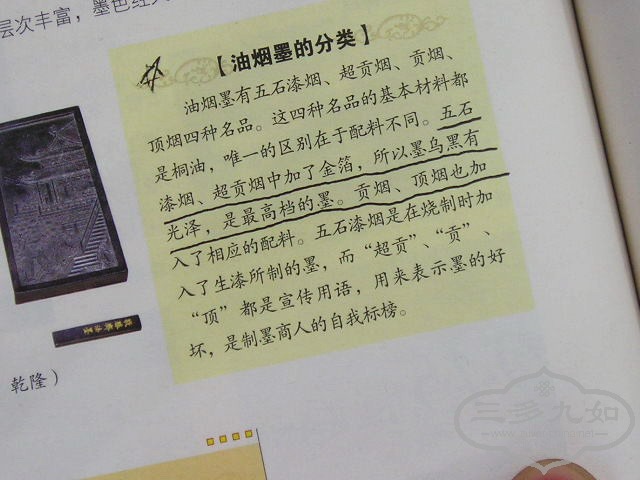 层次丰富，墨色经久
【油烟墨的分类】
油烟墨有五石漆烟、超贡烟、贡烟、
顶烟四种名品。这四种名品的基本材料都
是桐油，唯一的区别在于配料不同。五石
漆烟、超贡烟中加了金箔，所以墨乌黑有
光泽，是最高档的墨。贡烟、顶烟也加
入了相应的配料。五石漆烟是在烧制时加
入了生漆所制的墨，而“超贡”、“贡”、
“顶”都是宣传用语，用来表示墨的好
坏，是制墨商人的自我标榜。
乾隆）
三多九如